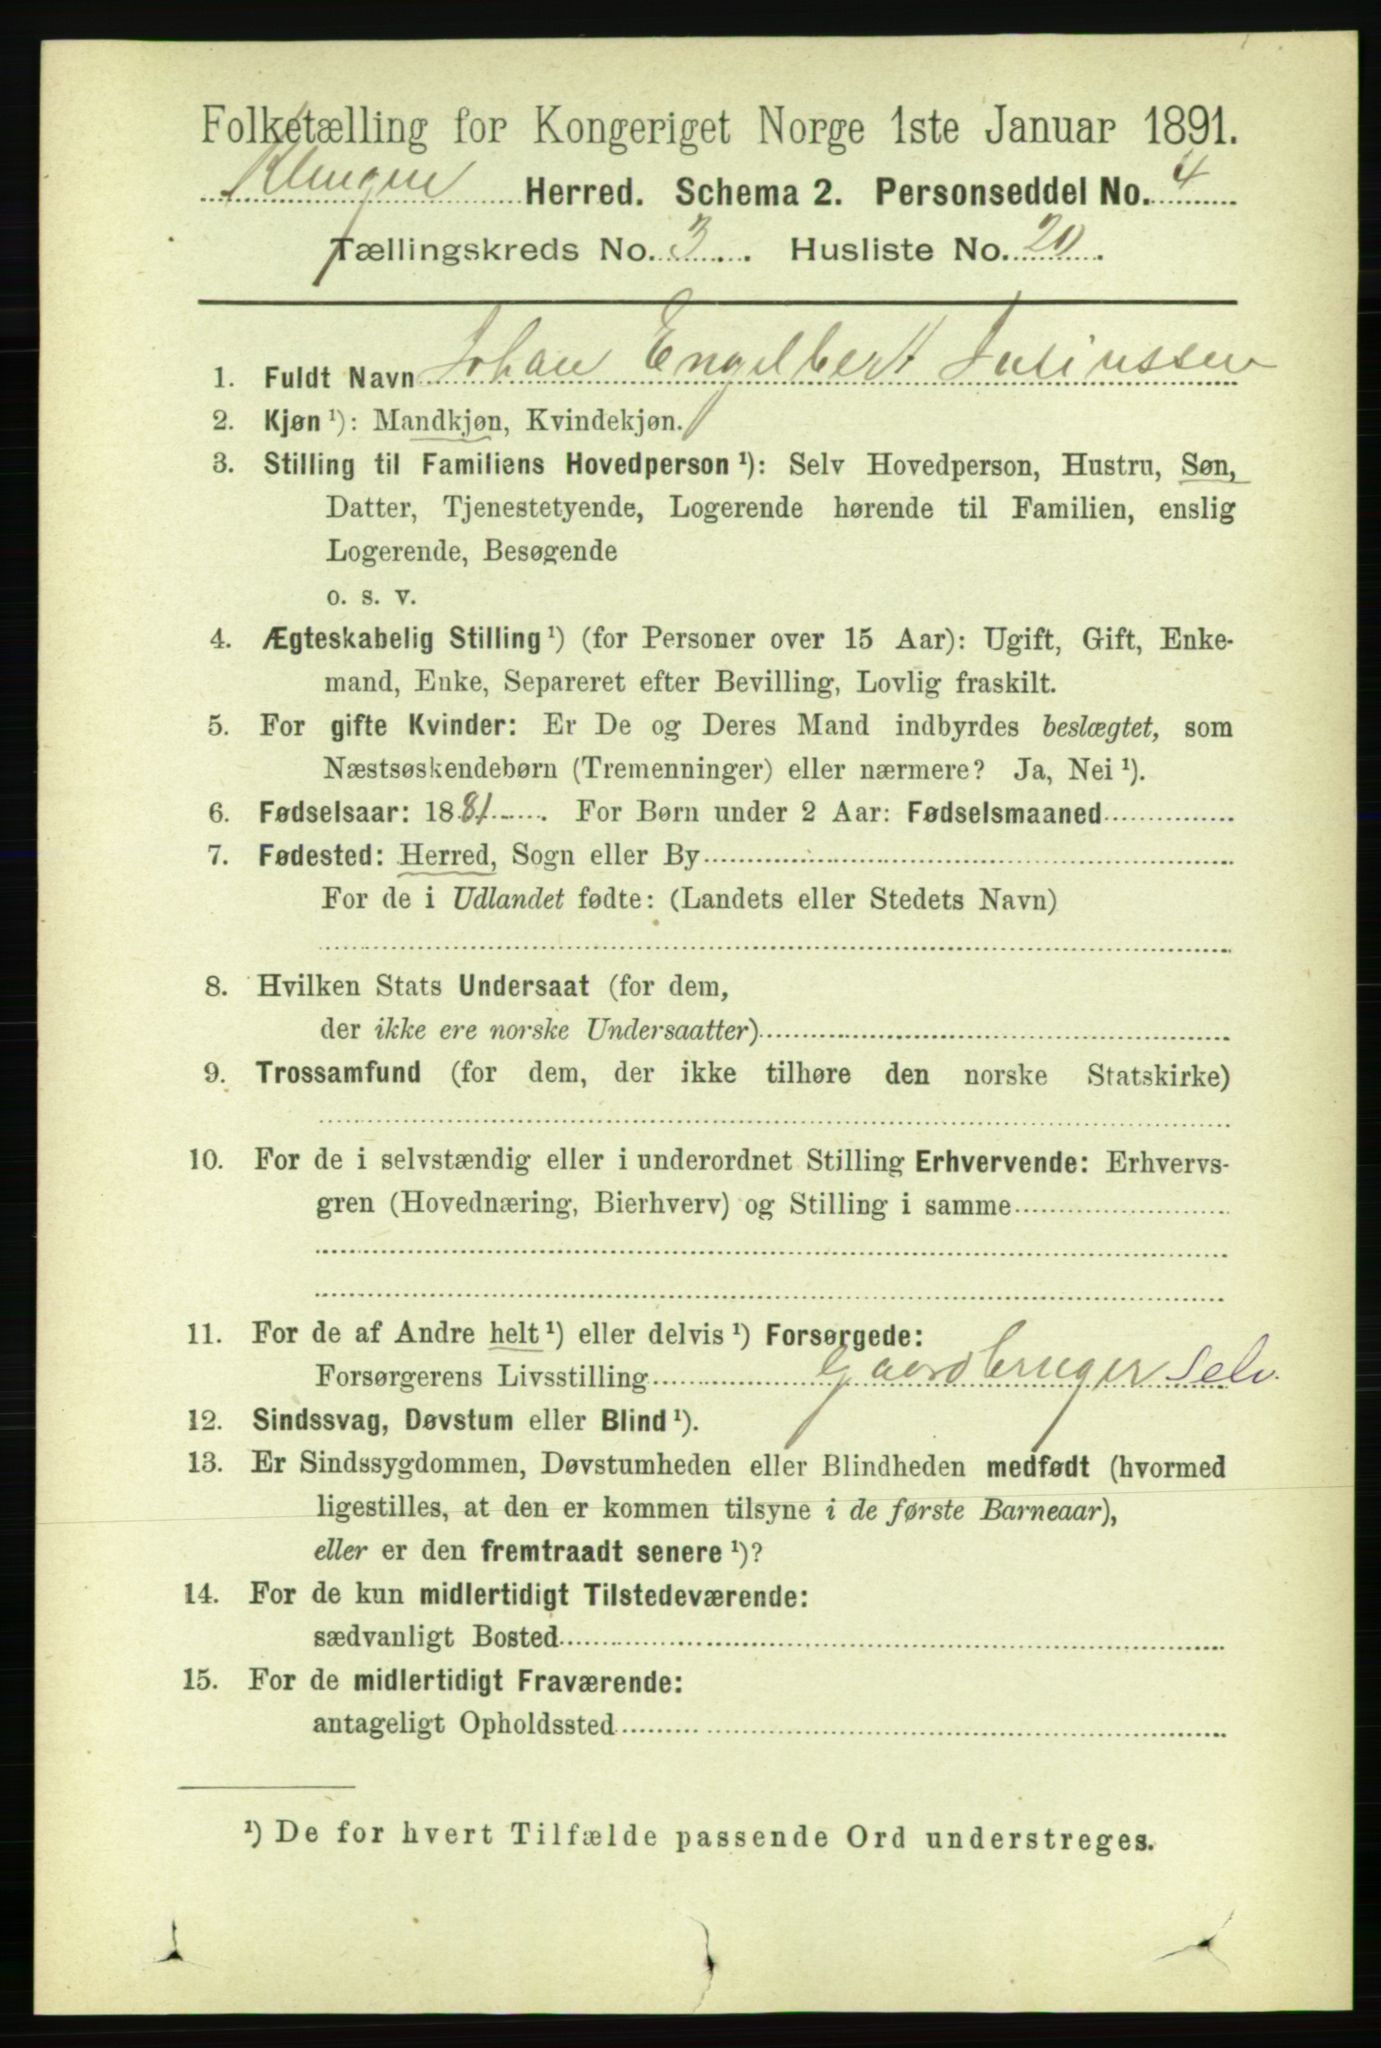 Folketælling for Kongeriget Norge 1ste Januar 1891.
Klingen Herred. Schema 2. Personseddel No. 4
Tællingskreds No. 3. Husliste No. 20.
1. Fuldt Navn Johan Engelbert Juliussen
2. Kjøn ¹): Mandkjøn, Kvindekjøn.
3. Stilling til Familiens Hovedperson ¹): Selv Hovedperson, Hustru, Søn,
Datter, Tjenestetyende, Logerende hørende til Familien, enslig
Logerende, Besøgende
o. s. v.
4. Ægteskabelig Stilling ¹) (for Personer over 15 Aar): Ugift, Gift, Enke-
mand, Enke, Separeret efter Bevilling, Lovlig fraskilt.
5. For gifte Kvinder: Er De og Deres Mand indbyrdes beslægtet, som
Næstsøskendebørn (Tremenninger) eller nærmere? Ja, Nei ¹).
6. Fødselsaar: 1881. For Børn under 2 Aar: Fødselsmaaned
7. Fødested: Herred, Sogn eller By
For de i Udlandet fødte: (Landets eller Stedets Navn)
8. Hvilken Stats Undersaat (for dem,
der ikke ere norske Undersaatter)
9. Trossamfund (for dem, der ikke tilhøre den norske Statskirke)
10. For de i selvstændig eller i underordnet Stilling Erhvervende: Erhvervs-
gren (Hovednæring, Bierhverv) og Stilling i samme
11. For de af Andre helt ¹) eller delvis ¹) Forsørgede:
Forsørgerens Livsstilling Gaardbruger Selv.
12. Sindssvag, Døvstum eller Blind ¹).
13. Er Sindssygdommen, Døvstumheden eller Blindheden medfødt (hvormed
ligestilles, at den er kommen tilsyne i de første Barneaar),
eller er den fremtraadt senere ¹)?
14. For de kun midlertidigt Tilstedeværende:
sædvanligt Bosted
15. For de midlertidigt Fraværende:
antageligt Opholdssted
¹) De for hvert Tilfælde passende Ord understreges.